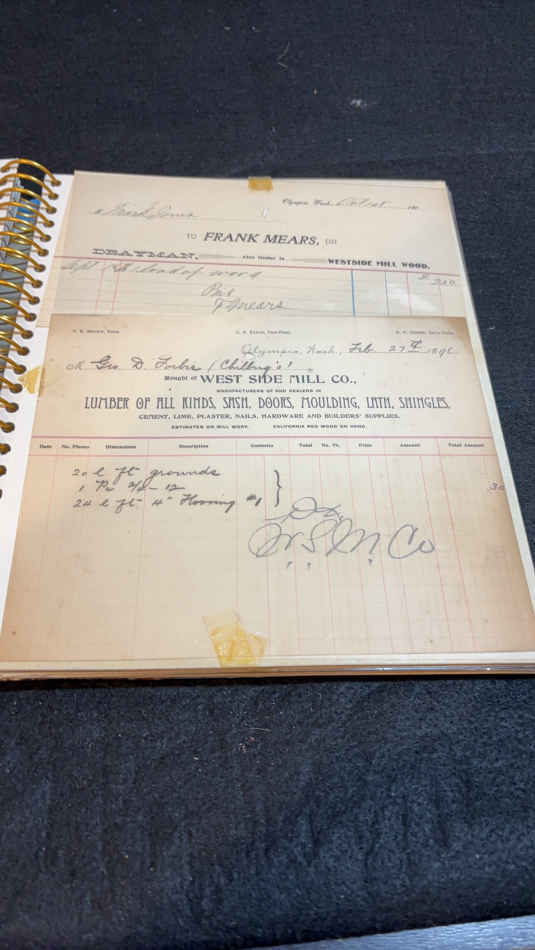 Olympia, Wash.
TO FRANK MEARS, Dr
DRAYMAN. Also Dealer in WESTSIDE MILL WOOD.
Sept load of wood
Pai
F Mears
Olympia, Wash, Feb 27th 189
M Geo D. Forbis (Chilberg's)
Bought of WEST SIDE MILL CO.,
MANUFACTURERS OF AND DEALERS IN
LUMBER OF ALL KINDS, SASH, DOORS, MOULDING, LATH, SHINGLES,
CEMENT, LIME, PLASTER, NAILS, HARDWARE AND BUILDERS' SUPPLIES.
ESTIMATES ON MILL WORK. CALIFORNIA RED WOOD ON HAND.
Date No. Pieces Dimensions Description Contents Total No. Ft. Price Amount Total Amount
20 l ft grounds
1 Pc 2/8 - 12
24 l ft 4" Flooring #1
30
W.S.M. Co